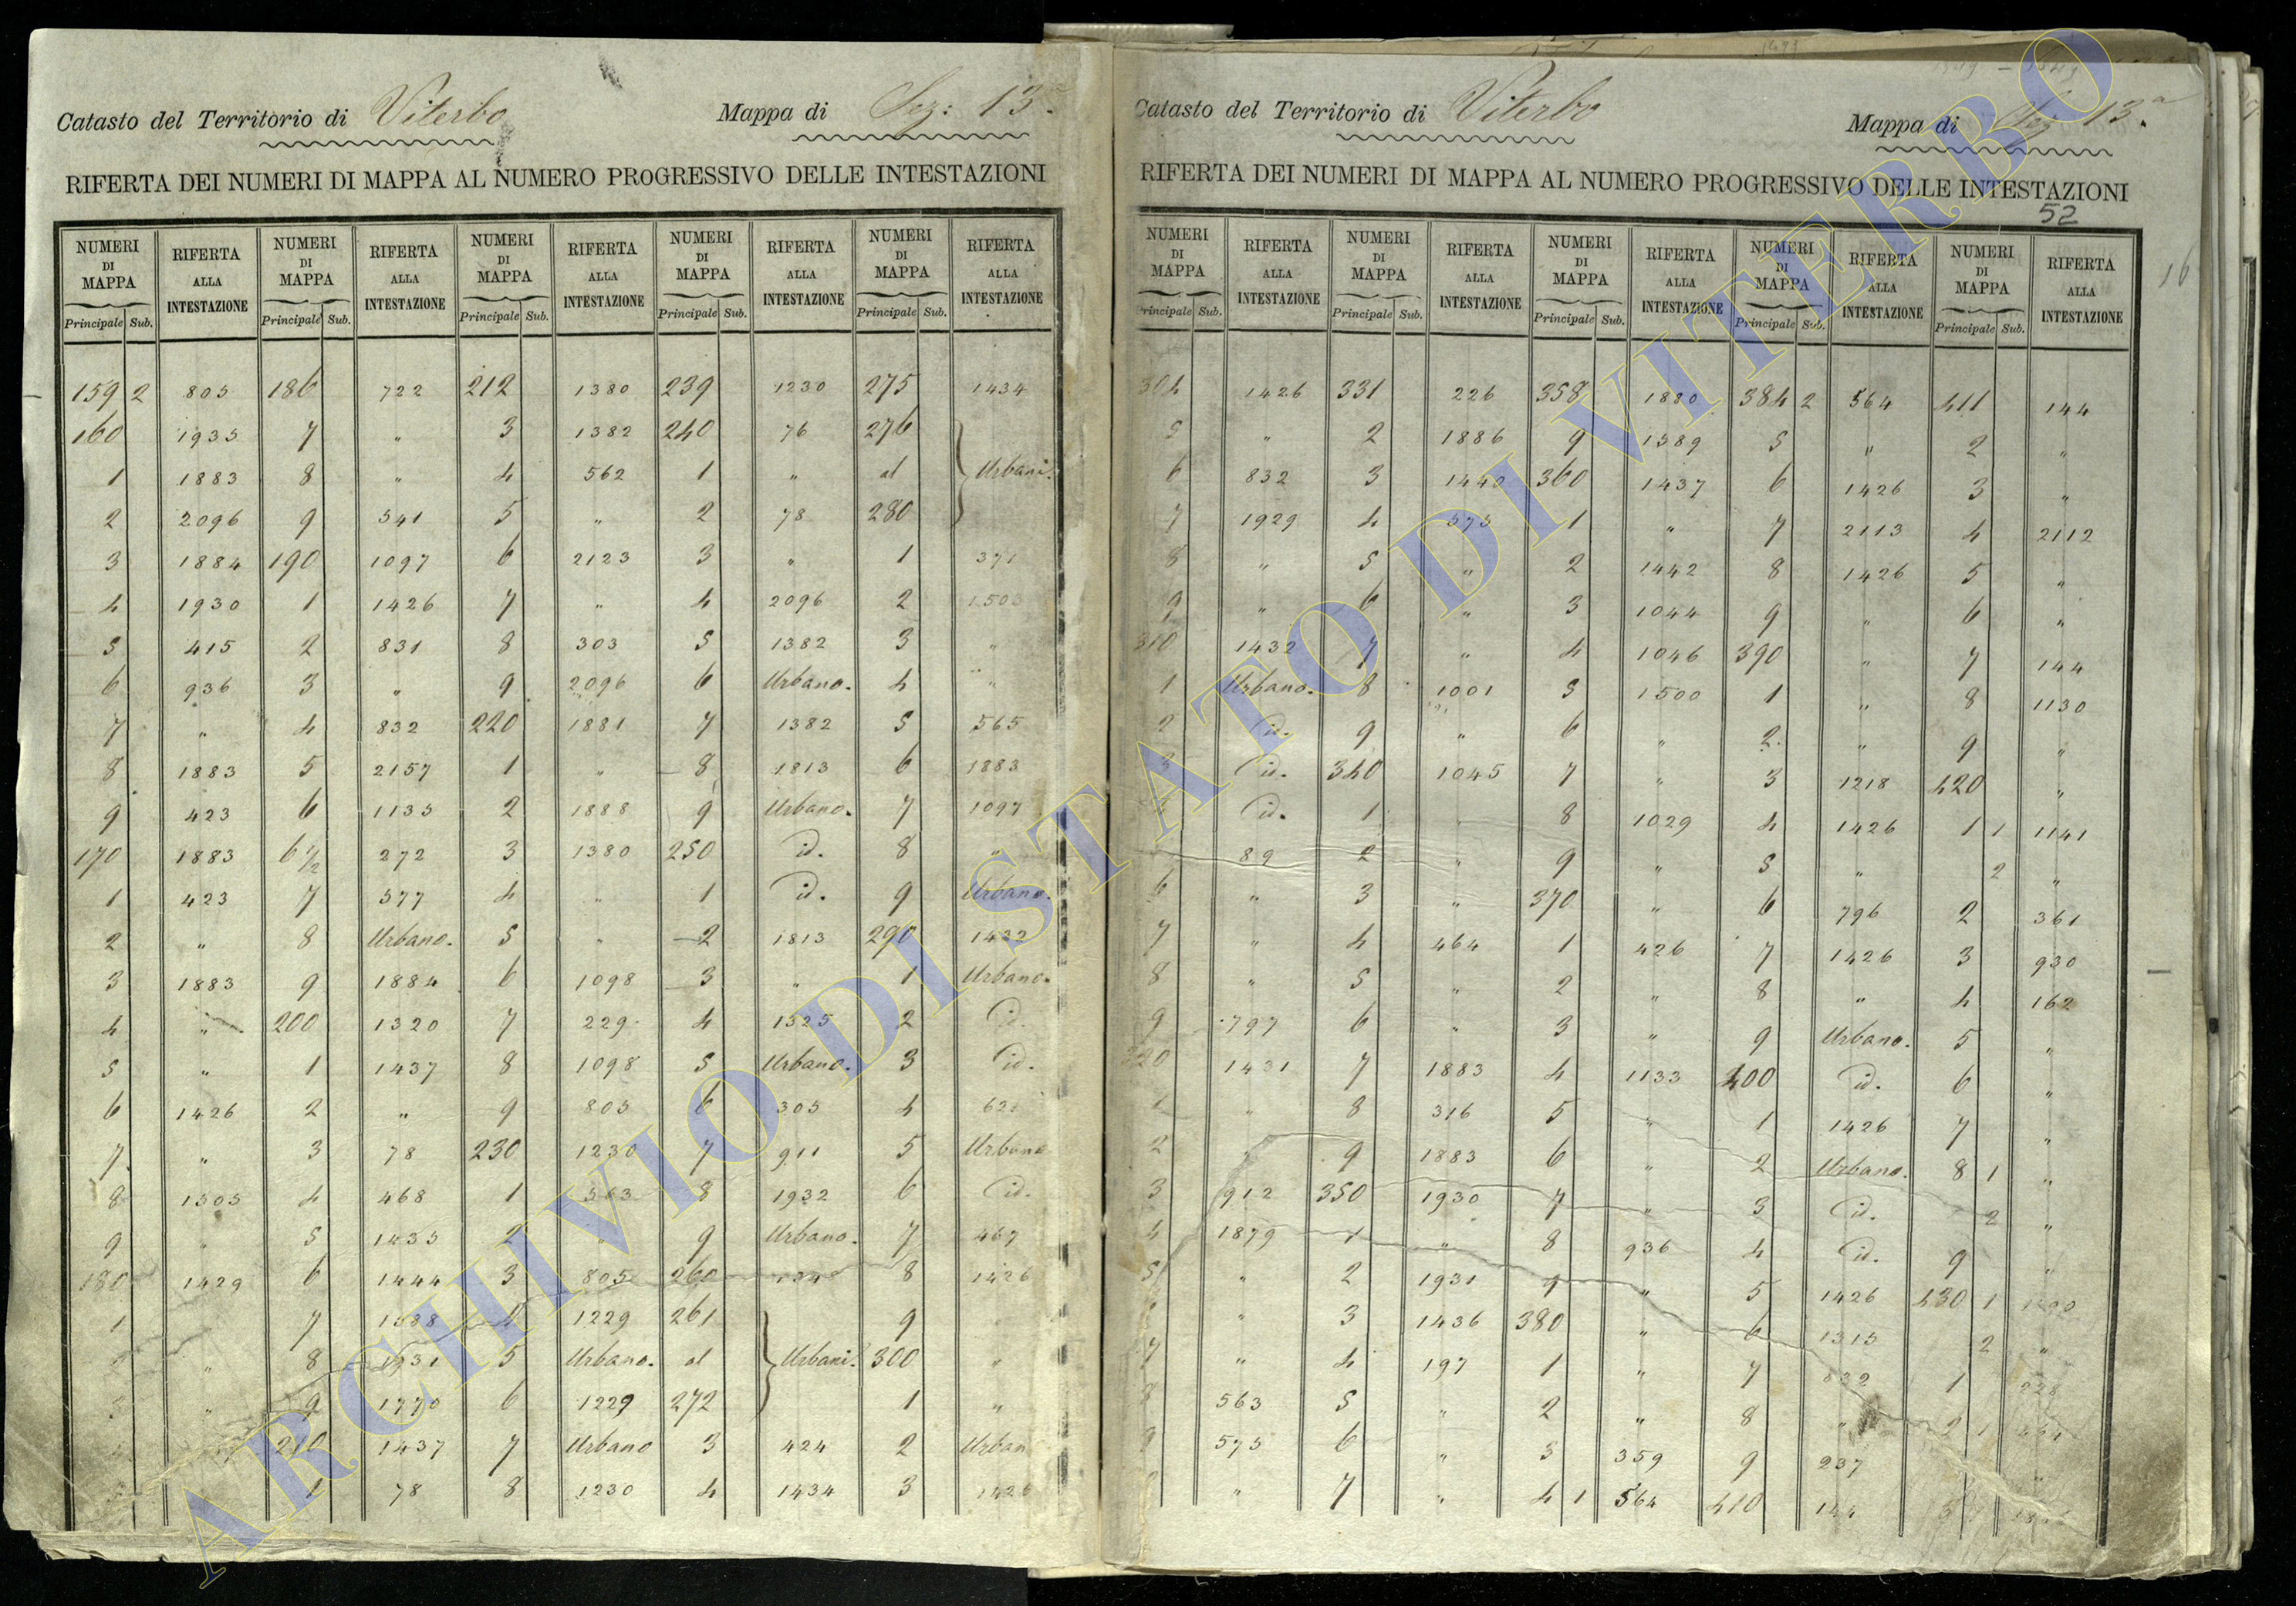 Catasto del Territorio di Viterbo Mappa di Sez: 13.a
RIFERTA DEI NUMERI DI MAPPA AL NUMERO PROGRESSIVO DELLE INTESTAZIONI
NUMERI DI MAPPA RIFERTA ALLA INTESTAZIONE NUMERI DI MAPPA RIFERTA ALLA INTESTAZIONE NUMERI DI MAPPA RIFERTA ALLA INTESTAZIONE NUMERI DI MAPPA RIFERTA ALLA INTESTAZIONE NUMERI DI MAPPA RIFERTA ALLA INTESTAZIONE
Principale Sub. Principale Sub. Principale Sub. Principale Sub. Principale Sub.
159 2 805 186 722 212 1380 239 1230 275 1434
160 1935 7 " 3 1382 240 76 276
1 1883 8 " 4 562 1 " al Urbani.
2 2096 9 541 5 " 2 78 280
3 1884 190 1097 6 2123 3 " 1 371
4 1930 1 1426 7 " 4 2096 2 1503
5 415 2 831 8 303 5 1382 3 "
6 936 3 " 9 2096 6 Urbano. 4 "
7 " 4 832 220 1881 7 1382 5 565
8 1883 5 2157 1 " 8 1813 6 1883
9 423 6 1135 2 1888 9 Urbano. 7 1097
170 1883 6 1/2 272 3 1380 250 id. 8 "
1 423 7 577 4 " 1 id. 9 Urbano.
2 " 8 Urbano. 5 " 2 1813 290 1432
3 1883 9 1884 6 1098 3 " 1 Urbano.
4 " 200 1320 7 229 4 1325 2 id.
5 " 1 1437 8 1098 5 Urbano. 3 id.
6 1426 2 " 9 805 6 305 4
7 " 3 78 230 1230 7 911 5 Urbano
8 1505 4 468 1 563 8 1932 6 id.
9 " 5 1435 2 " 9 Urbano. 7 467
180 1429 6 1444 3 805 260 8 1426
1 7 1388 4 1229 261 9
" 8 1931 5 Urbano. al Urbani. 300 "
" 9 1770 6 1229 272 1 "
210 1437 7 Urbano 3 424 2 Urban
1 78 8 1230 4 1434 3 1426
Catasto del Territorio di Viterbo Mappa di Sez 13.a
RIFERTA DEI NUMERI DI MAPPA AL NUMERO PROGRESSIVO DELLE INTESTAZIONI
52
16
NUMERI DI MAPPA RIFERTA ALLA INTESTAZIONE NUMERI DI MAPPA RIFERTA ALLA INTESTAZIONE NUMERI DI MAPPA RIFERTA ALLA INTESTAZIONE NUMERI DI MAPPA RIFERTA ALLA INTESTAZIONE NUMERI DI MAPPA RIFERTA ALLA INTESTAZIONE
Principale Sub. Principale Sub. Principale Sub. Principale Sub. Principale Sub.
304 1426 331 226 358 1880 384 2 564 411 144
5 " 2 1886 9 1389 5 " 2 "
6 832 3 1440 360 1437 6 1426 3 "
7 1929 4 575 1 " 7 2113 4 2112
8 " 5 " 2 1442 8 1426 5 "
9 " 6 " 3 1044 9 " 6 "
310 1432 7 " 4 1046 390 " 7 144
1 Urbano. 8 1001 5 1500 1 " 8 1130
2 id. 9 " 6 " 2 " 9 "
3 id. 340 1045 7 " 3 1218 420 "
4 id. 1 " 8 1029 4 1426 1 1 1141
89 2 " 9 " 5 " 2 "
6 " 3 " 370 " 6 796 2 361
7 " 4 464 1 426 7 1426 3 930
8 " 5 " 2 " 8 " 4 162
9 797 6 " 3 " 9 Urbano. 5 "
320 1431 7 1883 4 1133 400 id. 6 "
1 " 8 316 5 " 1 1426 7 "
2 " 9 1883 6 " 2 Urbano. 8 1 "
3 912 350 1930 7 " 3 id. 2 "
4 1879 1 " 8 936 4 id. 9 "
5 " 2 1931 9 " 5 1426 430 1
" 3 1436 380 " 6 1315 2 "
7 " 4 197 1 " 7 832 1
8 563 5 " 2 " 8 " 2 1
9 575 6 " 3 359 9 237 "
" 7 " 4 1 564 410 144
ARCHIVIO DI STATO DI VITERBO